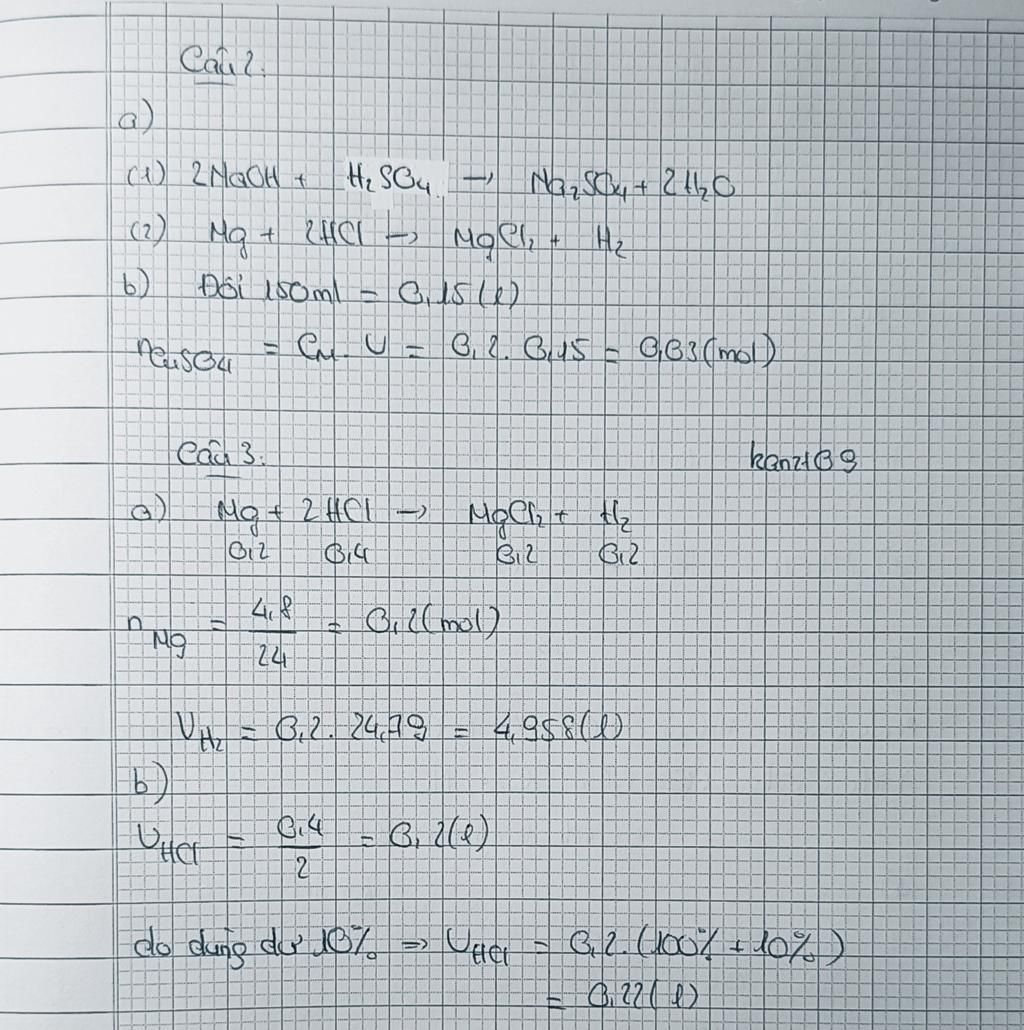 Câu 2.
a)
(1) 2NaOH + H₂SO₄ → Na₂SO₄ + 2H₂O
(2) Mg + 2HCl → MgCl₂ + H₂
b) Đổi 150ml = 0,15(l)
nCuSO₄ = CM. V = 0,2. 0,15 = 0,03(mol)
Câu 3.
kanzt09
a) Mg + 2HCl → MgCl₂ + H₂
0,2 0,4 0,2 0,2
nMg = 4,8/24 = 0,2(mol)
VH₂ = 0,2. 24,79 = 4,958(l)
b)
VHCl = 0,4/2 = 0,2(l)
do dùng dư 10% => VHCl = 0,2.(100% + 10%)
= 0,22(l)